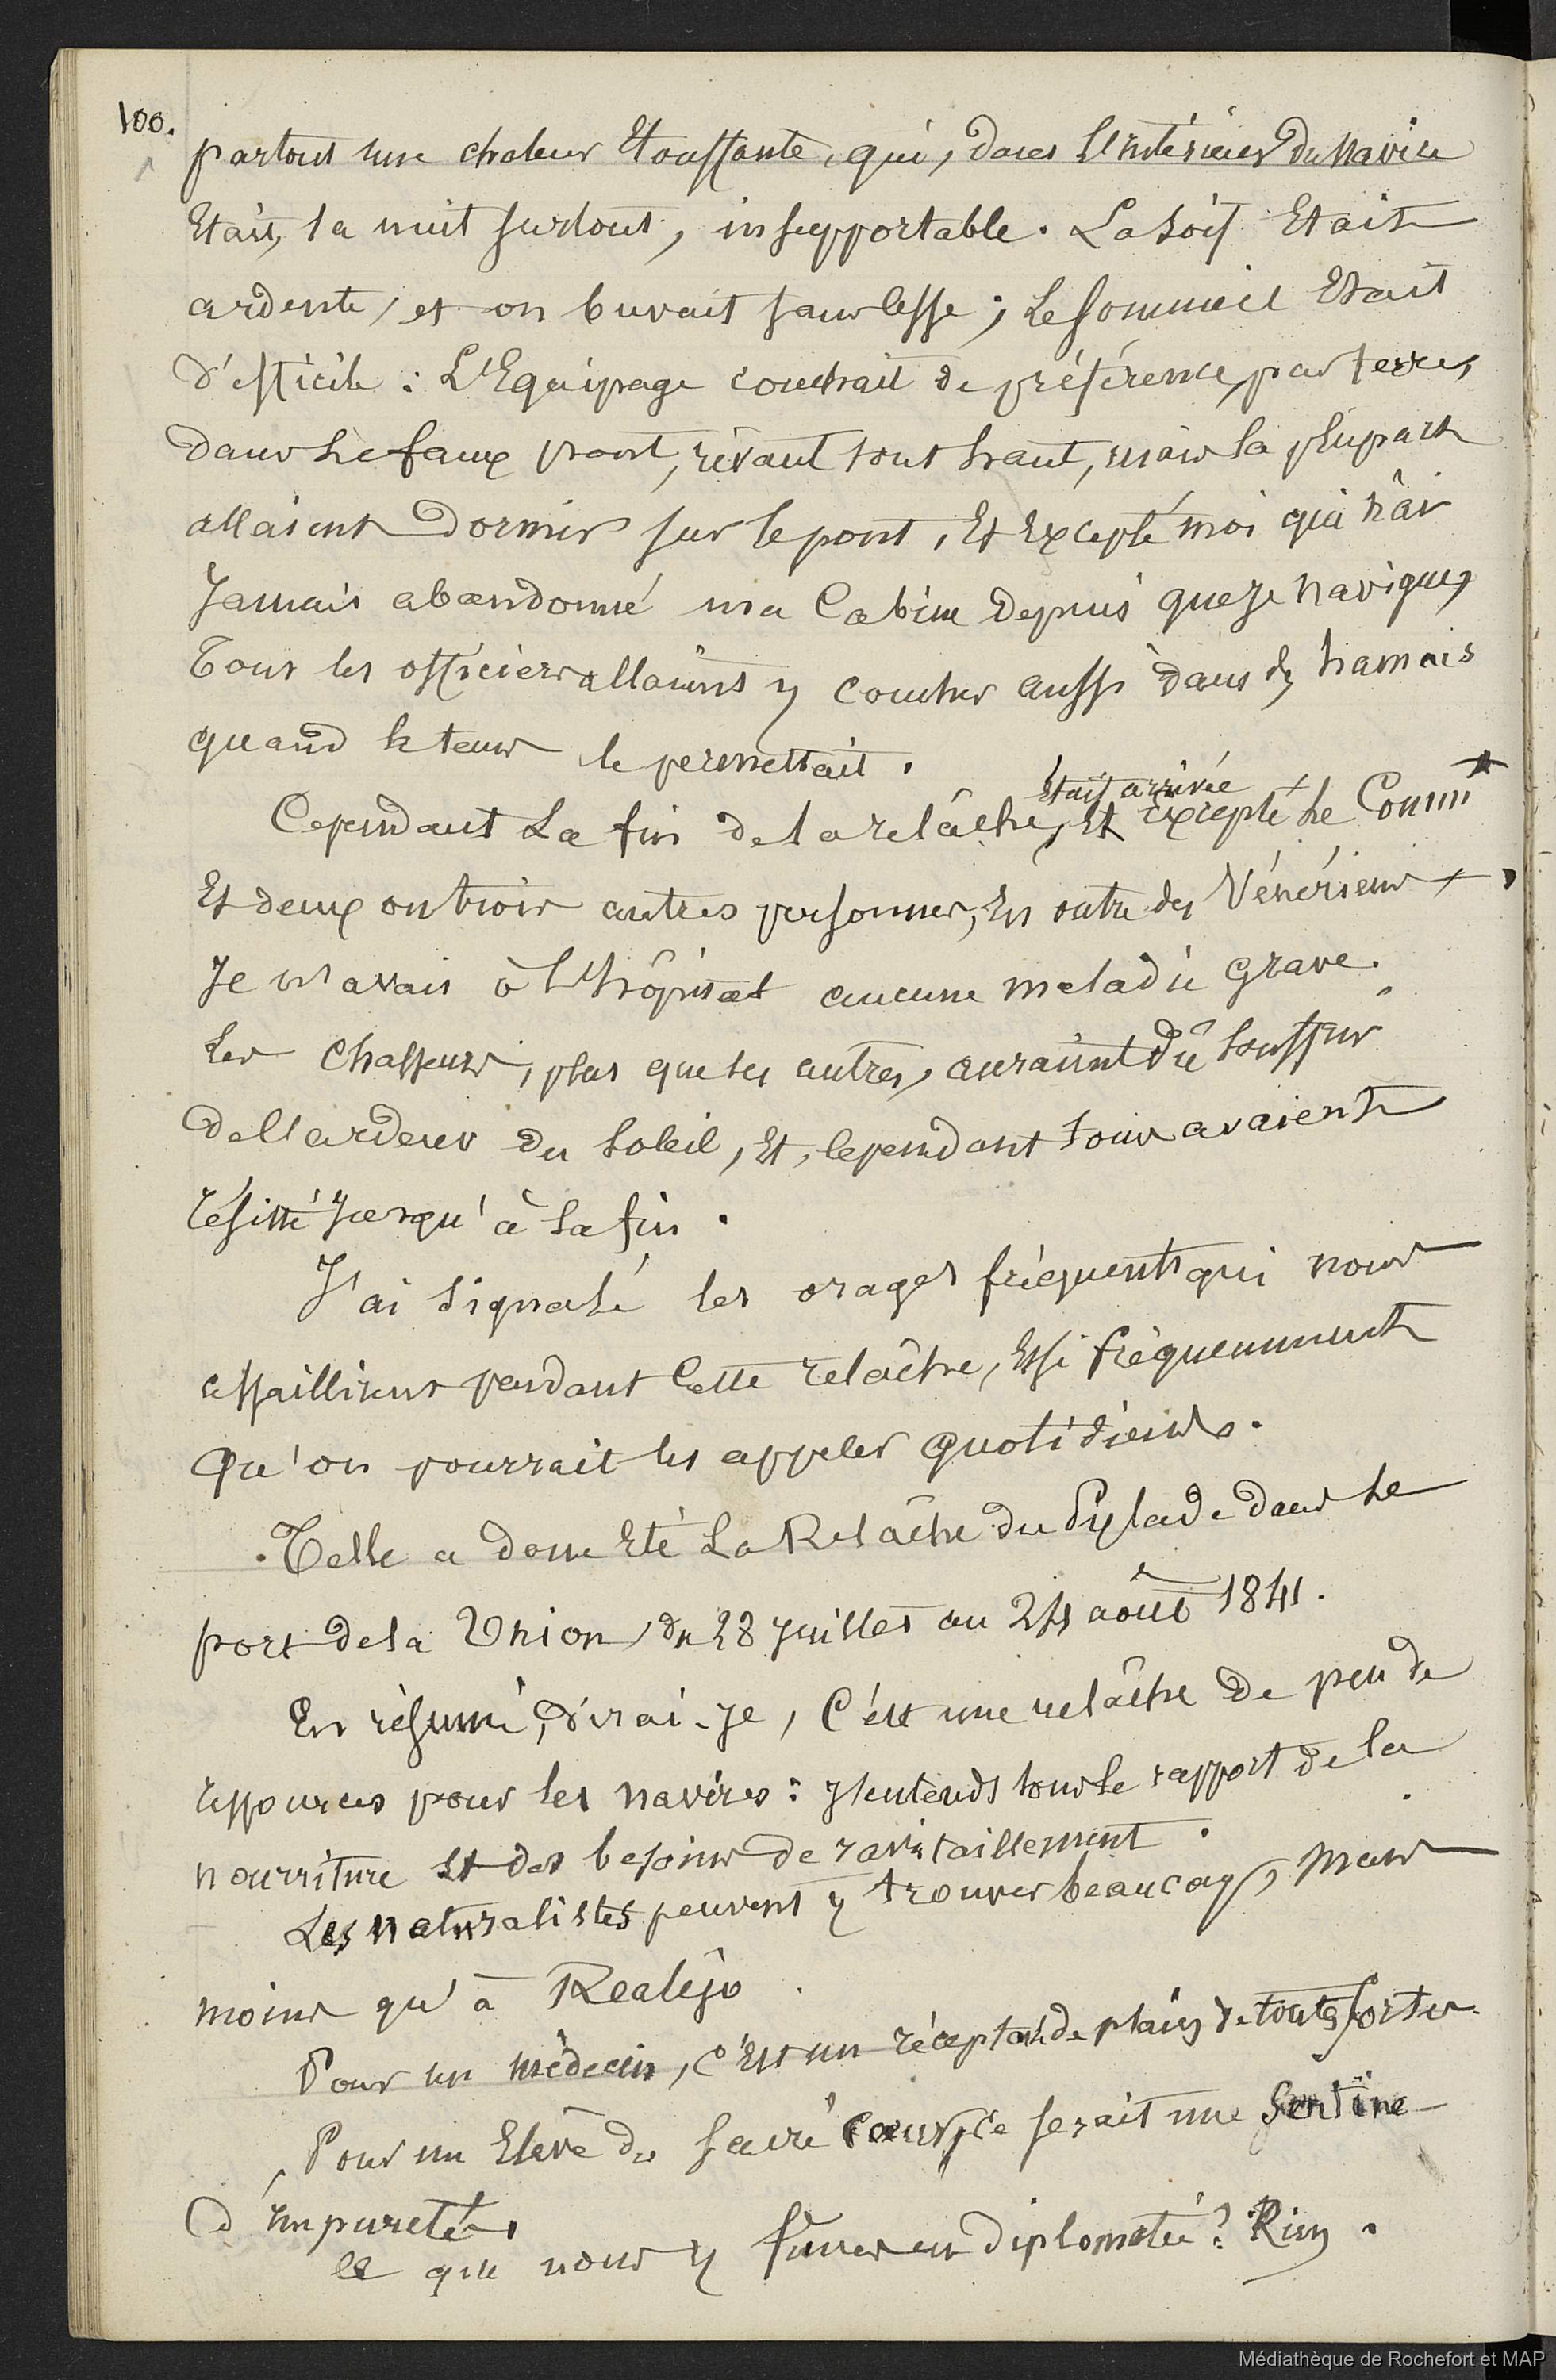 100.
partout une chaleur Etouffante, qui, dans l'intérieur du Navire
Etait, la nuit surtout, insupportable. La soif Etait
ardente, et on buvait sans cesse ; Le sommeil Etait
difficile : L'Equipage couchait de préférence, par terre,
dans le faux pont, rêvant tout haut, mais la plupart
allaient Dormir sur le pont, Et Excepté moi qui n'ai
Jamais abandonné ma Cabine depuis que je navigue,
Tous les officiers allaient y coucher aussi dans des hamacs
quand le tems le permettait.
Etait arrivée
Cependant La fin de la relâche, Et Excepté Le Comm.t
Et deux ou trois autres personnes, En outre des Vénériens,
Je n'avais à l'hôpital aucune maladie grave.
Les Chasseurs, plus que les autres, auraient Dû souffrir
de l'ardeur du soleil, Et, cependant tous avaient
résisté Jusqu'à la fin.
J'ai signalé les orages fréquents qui nous
assaillirent pendant Cette relâche, Et si fréquemment
Qu'on pourrait les appeler Quotidiens.
Telle a donc Eté La Relâche du Pylade dans Le
port de la Union, du 28 Juillet au 24 août 1841.
En résumé, dirai-je, C'est une relâche de peu de
ressources pour les navires : J'entends sous Le rapport de la
nourriture Et des besoins de ravitaillement.
Les naturalistes peuvent y trouver beaucoup, mais
moins qu'à Realejo.
Pour un médecin, c'Est un de plaies de toutes sortes.
Pour un Elève du sacré Coeur, ce serait une Sentine
d'impuretés.
Ce que nous y fimes en diplomatie ? Rien.
Médiathèque de Rochefort et MAP